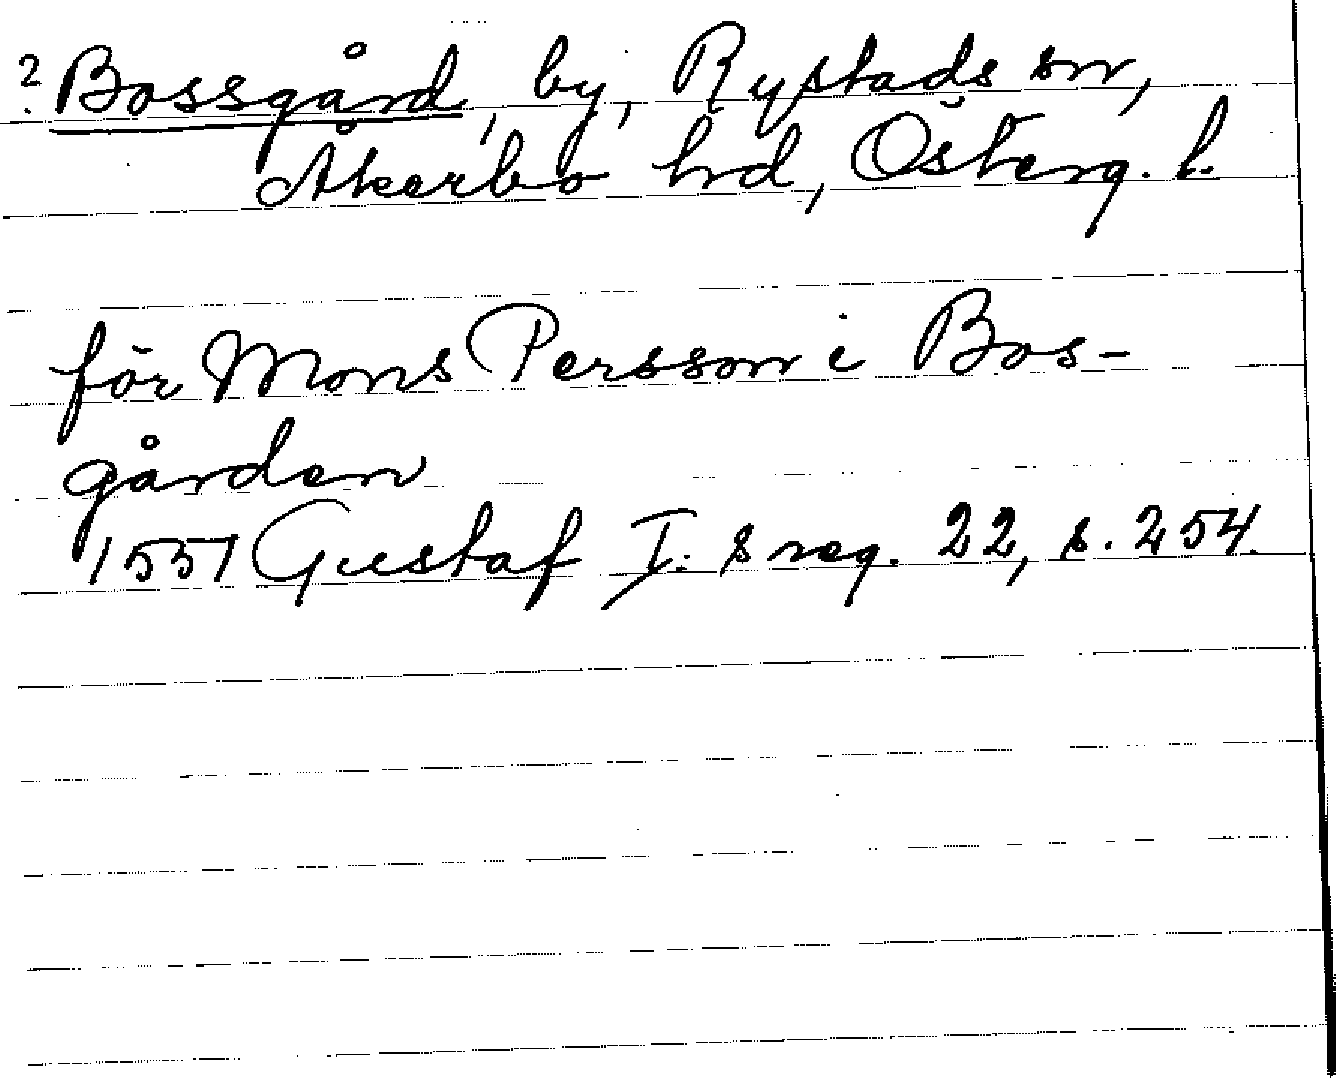 ? Bossgård, by, Rystads sn,
Åkerbo hd, Österg. l.
för Mons Persson i Bos-
gården
1551 Gustaf I:s reg. 22, s. 254.